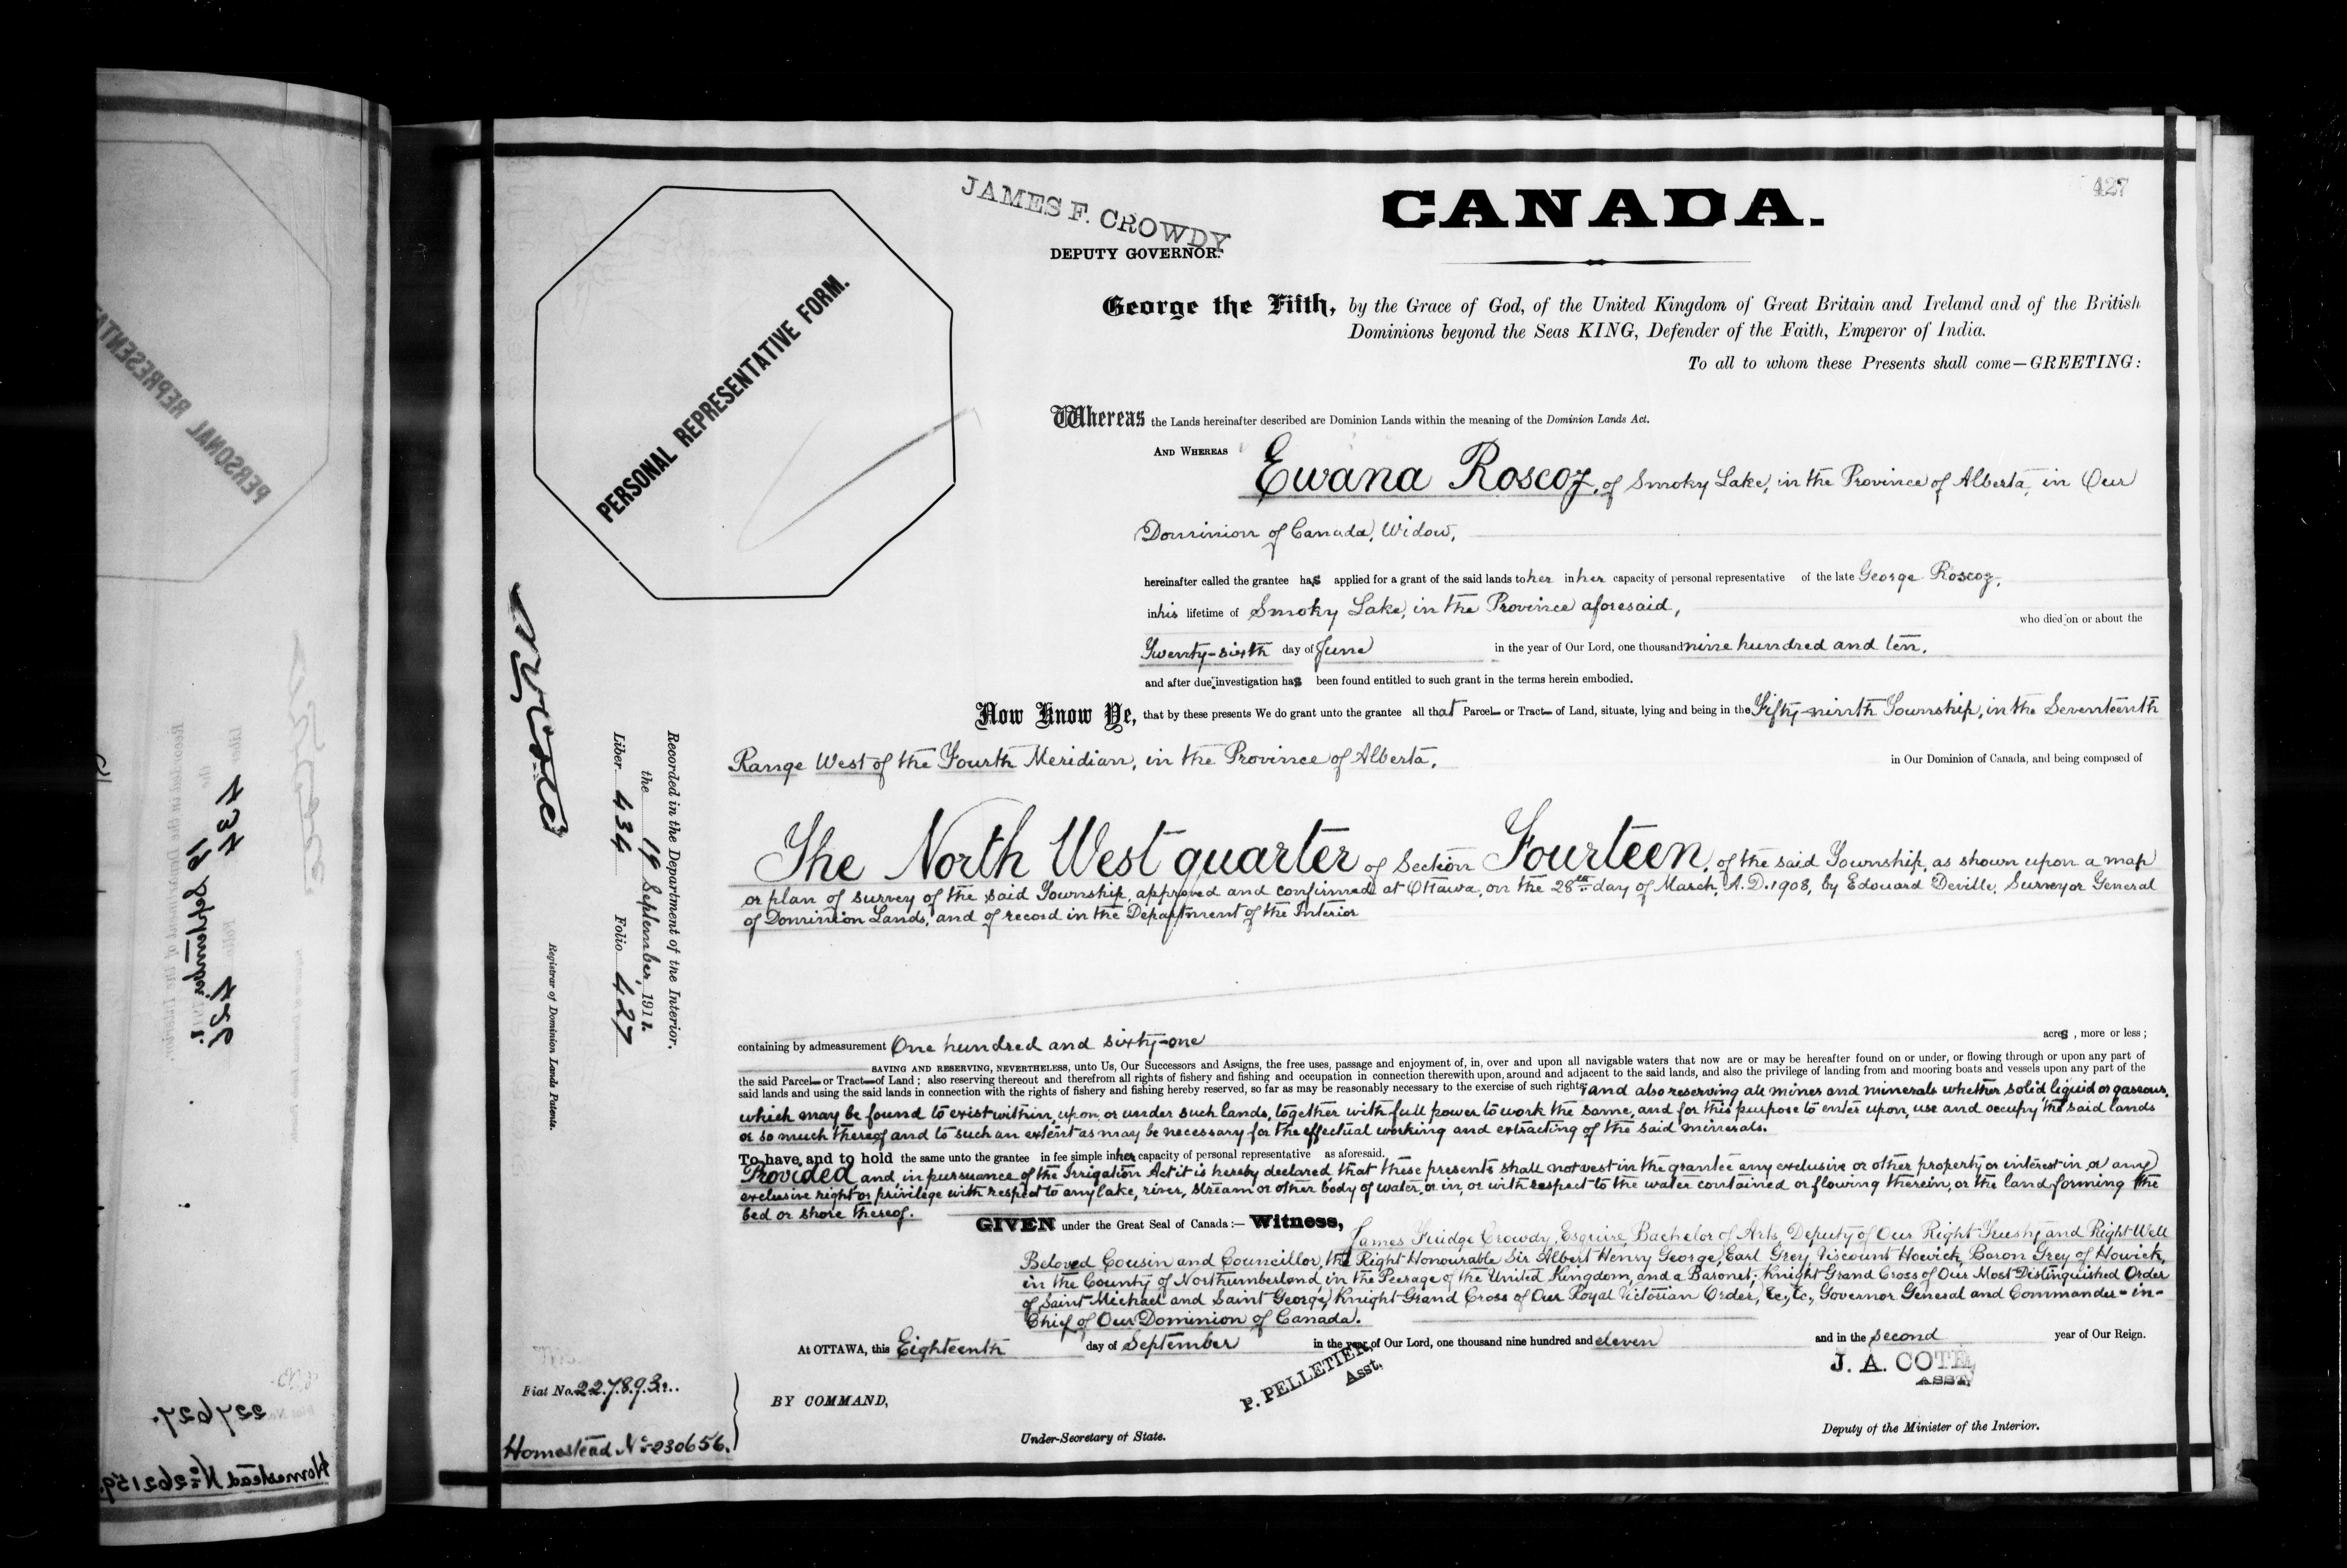 427
JAMES F. CROWDY
DEPUTY GOVERNOR.
CANADA.
PERSONAL REPRESENTATIVE FORM.
George the Fifth, by the Grace of God, of the United Kingdom of Great Britain and Ireland and of the British
Dominions beyond the Seas KING, Defender of the Faith, Emperor of India.
To all to whom these Presents shall come—GREETING:
Whereas the Lands hereinafter described are Dominion Lands within the meaning of the Dominion Lands Act.
AND WHEREAS Ewana Roscoz, of Smoky Lake, in the Province of Alberta, in Our
Dominion of Canada, Widow,
hereinafter called the grantee has applied for a grant of the said lands to her in her capacity of personal representative of the late George Roscoz,
in his lifetime of Smoky Lake, in the Province aforesaid,
who died on or about the
Twenty-sixth day of June in the year of Our Lord, one thousand nine hundred and ten,
and after due investigation has been found entitled to such grant in the terms herein embodied.
Now Know Ye, that by these presents We do grant unto the grantee all that Parcel or Tract of Land, situate, lying and being in the Fifty-ninth Township, in the Seventeenth
Range West of the Fourth Meridian, in the Province of Alberta, in Our Dominion of Canada, and being composed of
The North West quarter of Section Fourteen, of the said Township, as shown upon a map
or plan of survey of the said Township, approved and confirmed at Ottawa, on the 28th day of March, A.D. 1908, by Edouard Deville, Surveyor General
of Dominion Lands, and of record in the Department of the Interior
containing by admeasurement One hundred and sixty-one acres, more or less;
SAVING AND RESERVING, NEVERTHELESS, unto Us, Our Successors and Assigns, the free uses, passage and enjoyment of, in, over and upon all navigable waters that now are or may be hereafter found on or under, or flowing through or upon any part of
the said Parcel or Tract of Land; also reserving thereout and therefrom all rights of fishery and fishing and occupation in connection therewith upon, around and adjacent to the said lands, and also the privilege of landing from and mooring boats and vessels upon any part of the
said lands and using the said lands in connection with the rights of fishery and fishing hereby reserved, so far as may be reasonably necessary to the exercise of such rights; and also reserving all mines and minerals whether solid, liquid or gaseous,
which may be found to exist within, upon, or under such lands, together with full power to work the same, and for this purpose to enter upon, use and occupy the said lands
or so much thereof and to such an extent as may be necessary for the effectual working and extracting of the said minerals.
To have and to hold the same unto the grantee in fee simple in her capacity of personal representative as aforesaid.
Provided, and in pursuance of the Irrigation Act it is hereby declared that these presents shall not vest in the grantee any exclusive or other property or interest in, or any
exclusive right or privilege with respect to any lake, river, stream or other body of water, or in, or with respect to the water contained or flowing therein, or the land forming the
bed or shore thereof.
GIVEN under the Great Seal of Canada:— Witness, James Fuidge Crowdy, Esquire, Bachelor of Arts, Deputy of Our Right Trusty and Right Well
Beloved Cousin and Councillor, the Right Honourable Sir Albert Henry George, Earl Grey, Viscount Howick, Baron Grey of Howick,
in the County of Northumberland, in the Peerage of the United Kingdom, and a Baronet; Knight Grand Cross of Our Most Distinguished Order
of Saint Michael and Saint George, Knight Grand Cross of Our Royal Victorian Order, &c., &c., Governor General and Commander-in-
Chief of Our Dominion of Canada.
At OTTAWA, this Eighteenth day of September in the year of Our Lord, one thousand nine hundred and eleven and in the second year of Our Reign.
BY COMMAND,
P. PELLETIER,
Asst.
Under-Secretary of State.
J. A. COTÉ
ASST.
Deputy of the Minister of the Interior.
Recorded in the Department of the Interior.
the 19 September, 1911.
Liber 434 Folio 427
Registrar of Dominion Lands Patents.
Fiat No. 227893.
Homestead No. 230656.
PERSONAL REPRESENT
227627.
Homestead No. 262159.